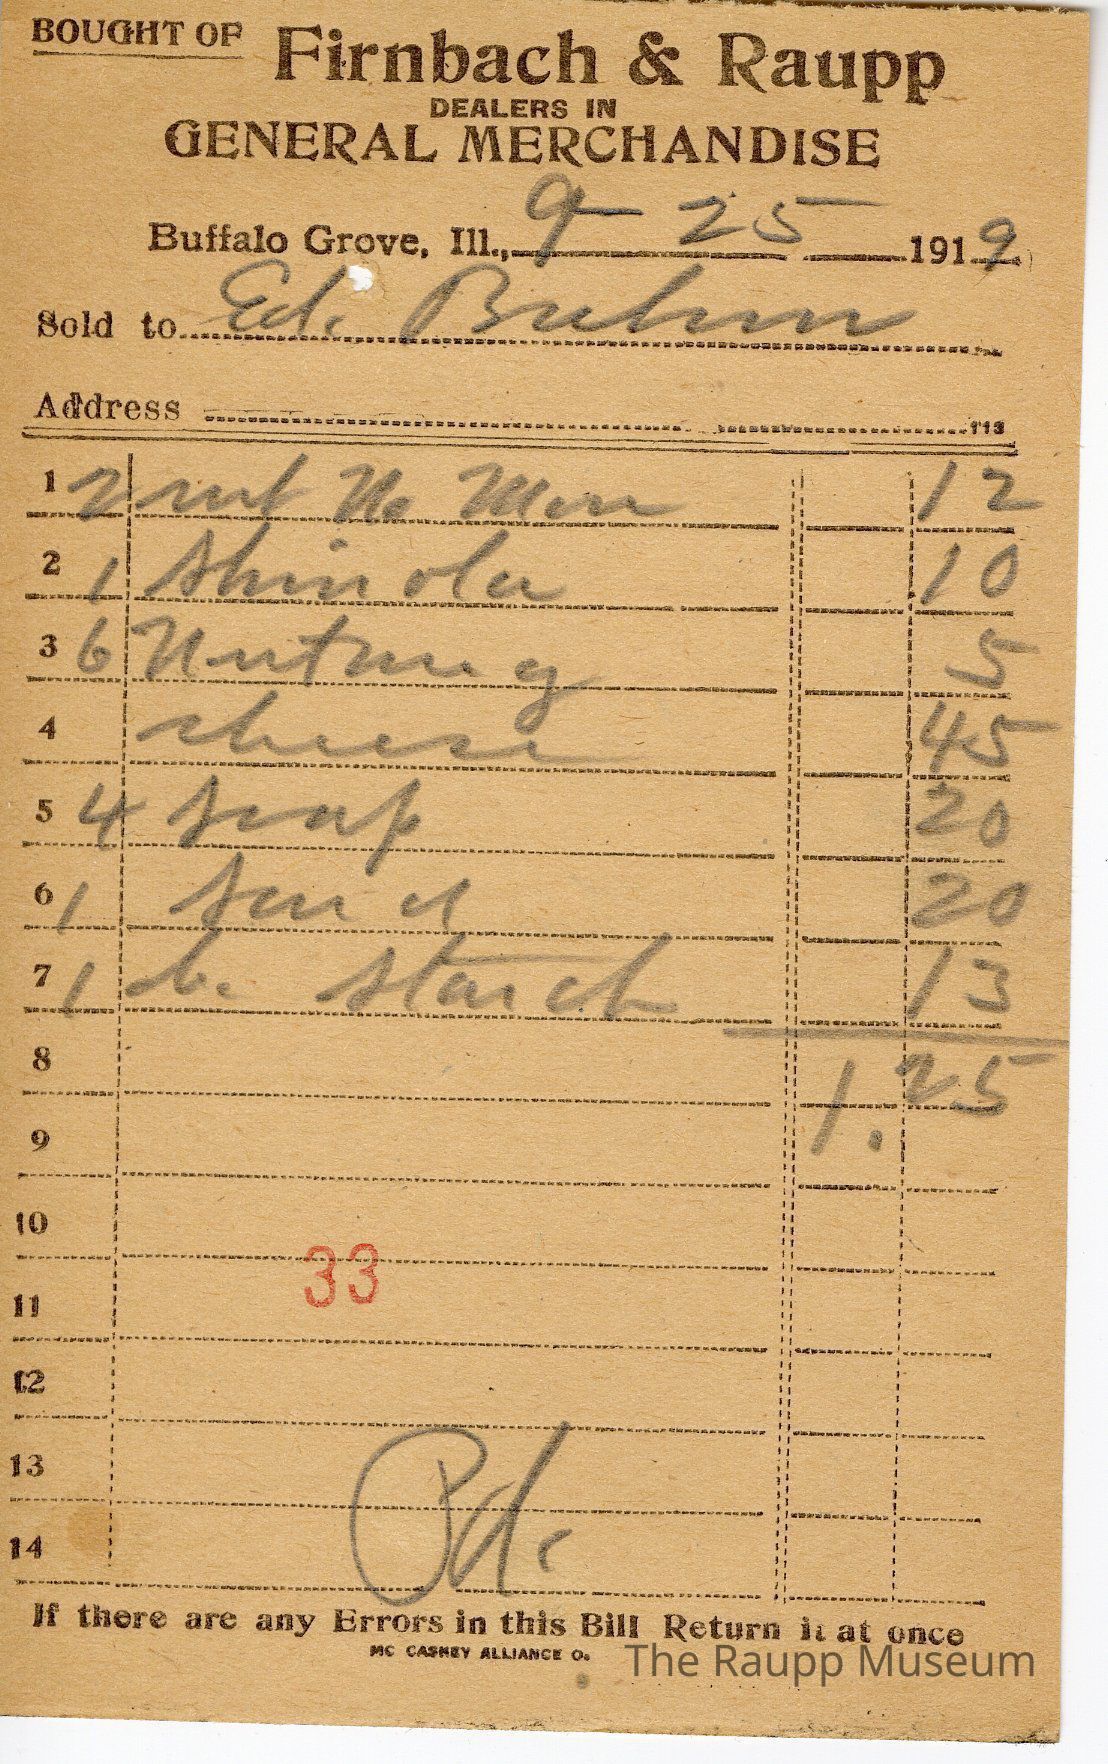 BOUGHT OF Firnbach & Raupp
DEALERS IN
GENERAL MERCHANDISE
Buffalo Grove, Ill., 9-25 1919
Sold to Ed. Buhm
Address 113
1 2 12
2 1 Shinola 10
3 6 Nutmeg 5
4 cheese 45
5 4 Soap 20
6 1 20
7 1 b. starch 13
8 1.25
9
10
33
11
12
13
Pd.
14
If there are any Errors in this Bill Return it at once
MC CASKEY ALLIANCE O.
The Raupp Museum